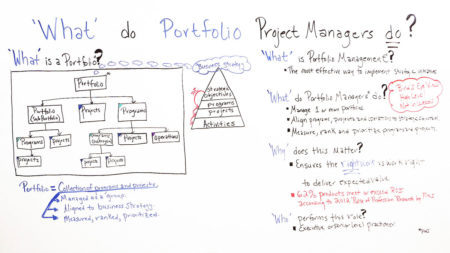 'What' do Portfolio Project Managers do?
'What' is a Portfolio?
Business Strategy
Portfolio
Portfolio
(Sub Portfolio)
Projects
Programs
Programs
projects
Programs
Projects
operations
projects
projects
projects
Strategic
objectives
programs
projects
Activities
Portfolio = Collection of programs and projects.
Managed as a group.
Aligned to business strategy.
Measured, ranked, prioritized.
'What' is Portfolio Management?
The most effective way to implement
'What' do Portfolio Managers do?
Manage 1 or more portfolios
Align programs, projects and operations to
Measure, rank and prioritize programs and projects.
'Why' does this Matter?
Ensures the right work is work right
to deliver expected value
62% projects meet or exceed ROI
according to 2012 Pulse of Profession Research by PMI
'Who' performs this role?
Executive or senior level practitioner